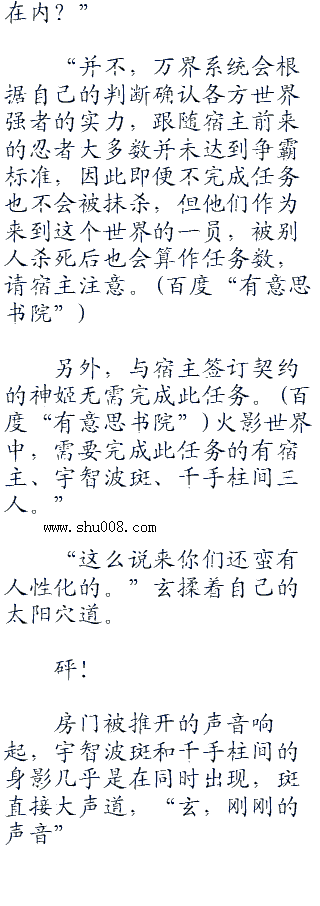 在内？”
“并不，万界系统会根
据自己的判断确认各方世界
强者的实力，跟随宿主前来
的忍者大多数并未达到争霸
标准，因此即便不完成任务
也不会被抹杀，但他们作为
来到这个世界的一员，被别
人杀死后也会算作任务数，
请宿主注意。(百度“有意思
书院”)
另外，与宿主签订契约
的神姬无需完成此任务。(百
度“有意思书院”)火影世界
中，需要完成此任务的有宿
主、宇智波斑、千手柱间三
人。”
www.shu008.com
“这么说来你们还蛮有
人性化的。”玄揉着自己的
太阳穴道。
砰！
房门被推开的声音响
起，宇智波斑和千手柱间的
身影几乎是在同时出现，斑
直接大声道，“玄，刚刚的
声音”